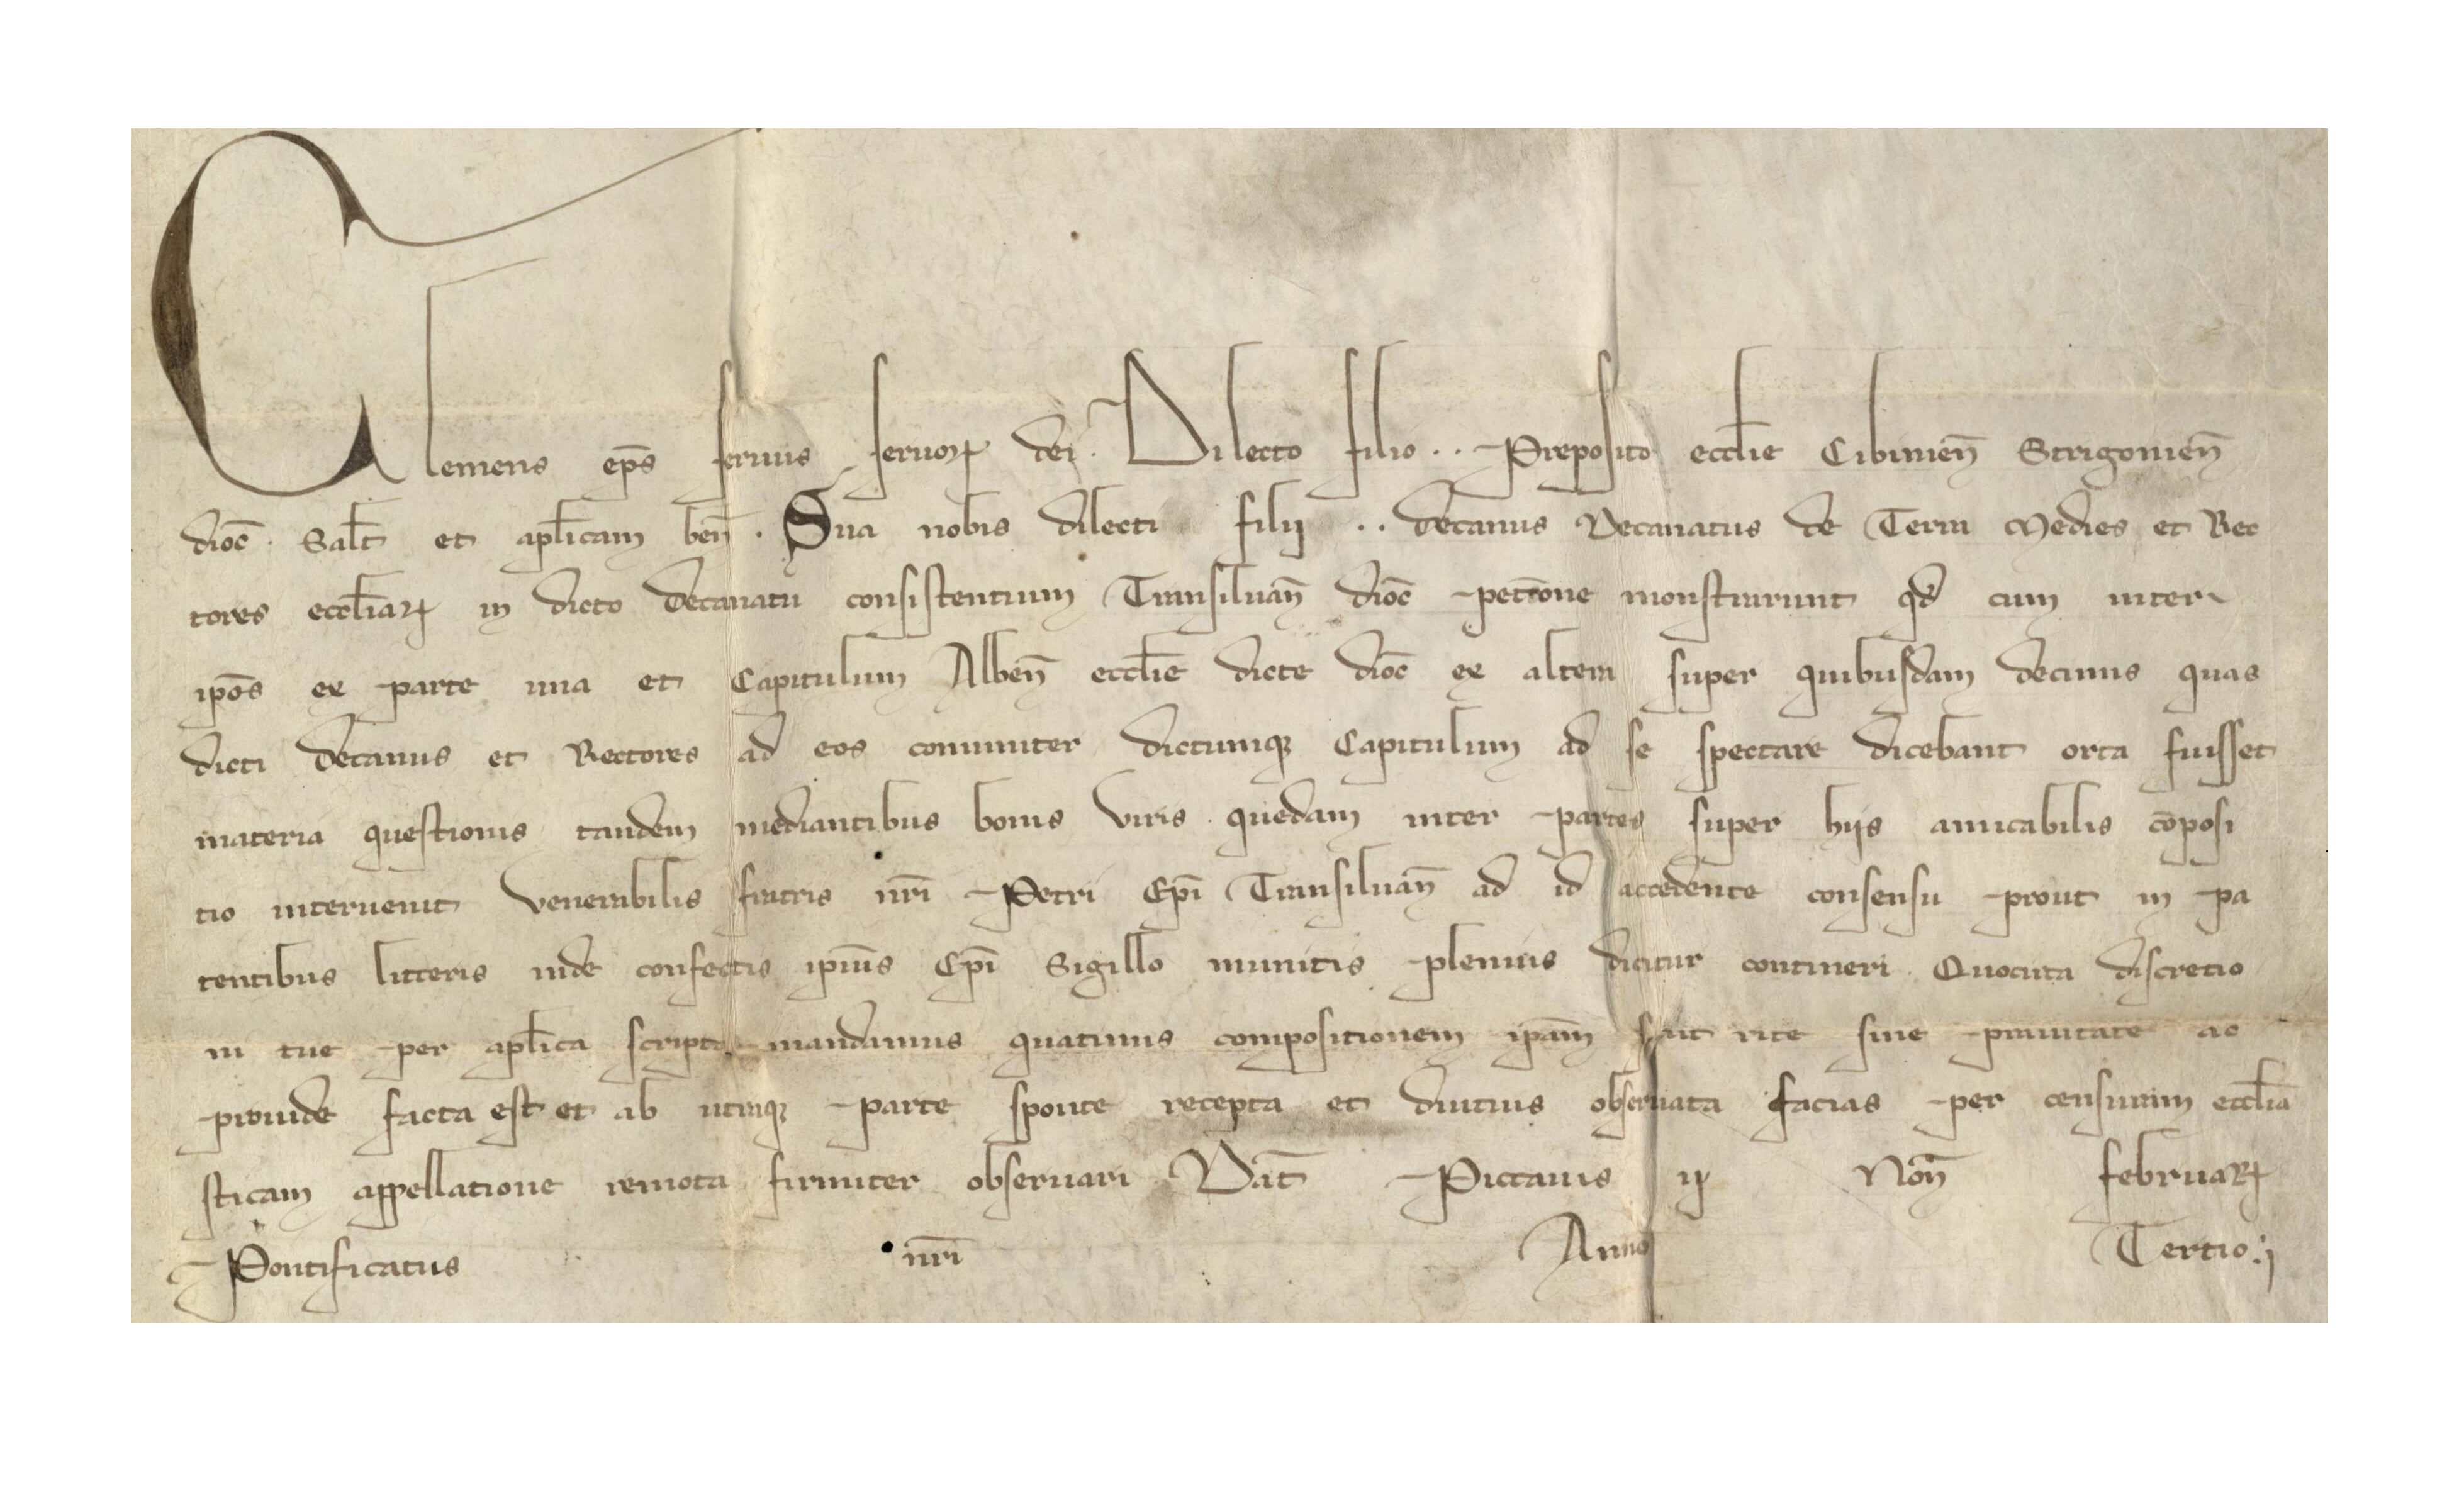 Clemens ep̄s seruus seruoꝝ dei. Dilecto filio .. Preposito eccl̄ie Cibinien̄ Strigonien̄
dioc̄. Sal̄t et apl̄icam ben̄. Sua nobis dilecti filij .. decanus Decanatus de Terra Medies et Rec
tores eccl̄iaꝝ in dicto decanatu consistentium Transiluan̄ dioc̄ petic̄one monstrarunt qd̄ cum inter
ip̄os ex parte una et Capitulum Alben̄ eccl̄ie dicte dioc̄ ex altera super quibusdam decimis quas
dicti decanus et Rectores ad eos comuniter dictumqꝫ Capitulum ad se spectare dicebant orta fuisset
materia questionis tandem mediantibus bonis viris quedam inter partes super hijs amicabilis cōposi
tio interuenit Venerabilis fratris nr̄i Petri Ep̄i Transiluan̄ ad id accedente consensu prout in pa
tentibus litteris inde confectis ip̄ius Ep̄i Sigillo munitis plenius dicitur contineri. Quocirca discretio
ni tue per apl̄ica scripta mandamus quatinus compositionem ip̄am sicut rite sine prauitate ac
prouide facta est et ab utraqꝫ parte sponte recepta et diutius obseruata facias per censuram eccl̄ia
sticam appellatione remota firmiter obseruari Dat̄ Pictauis ij Non̄ Februaꝝ
Pontificatus nr̄i Anno Tertio :j